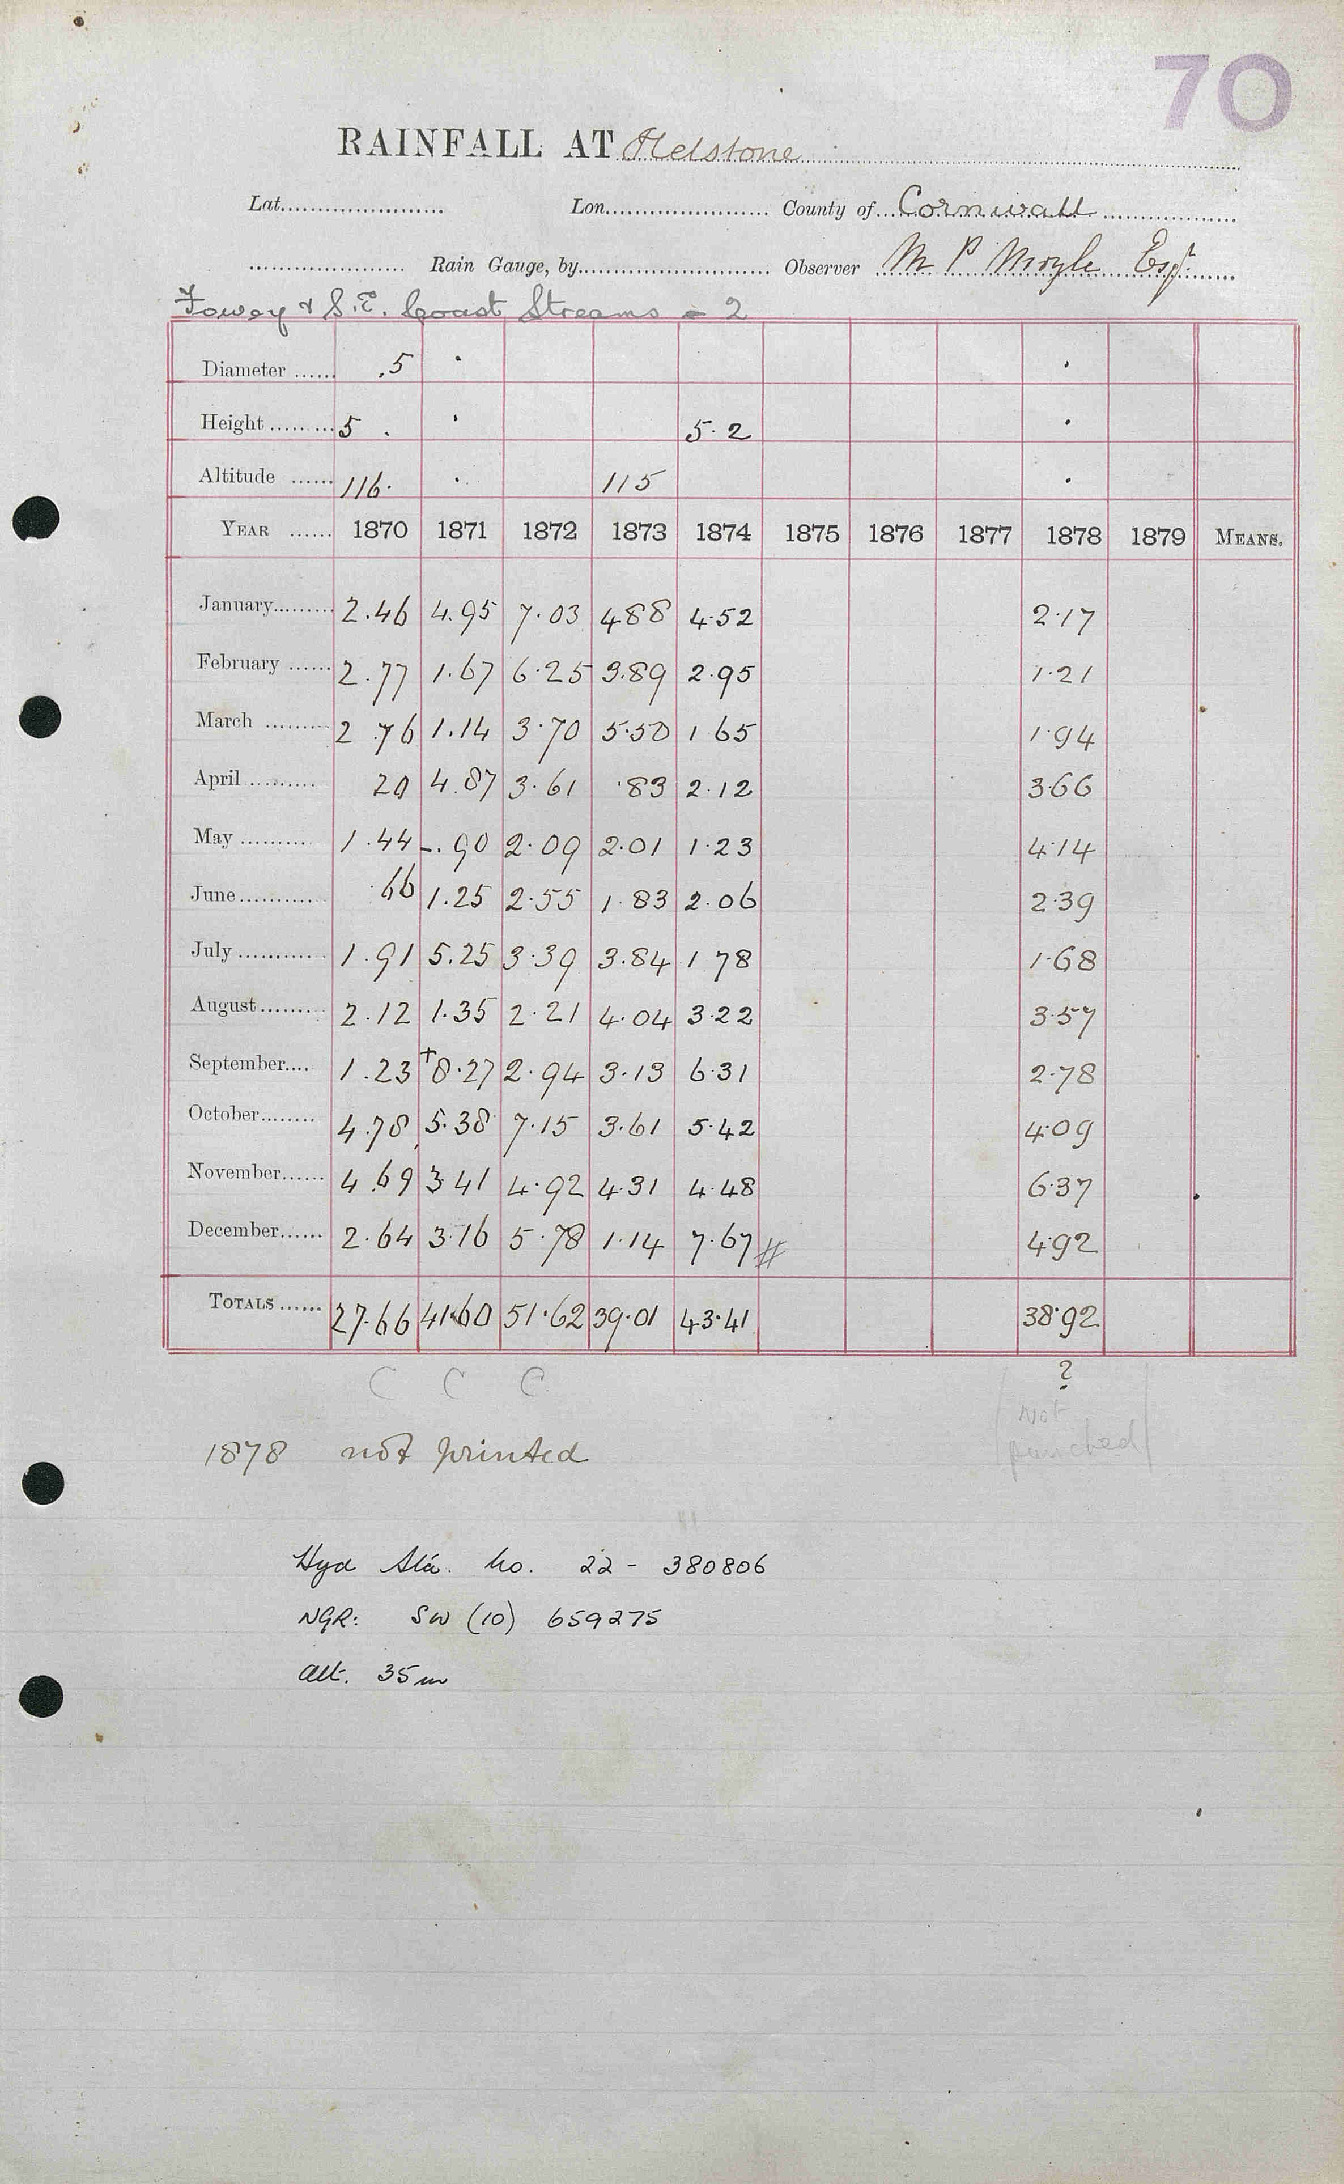 70
RAINFALL AT Helstone
Lat. Lon. County of Cornwall
Rain Gauge, by Observer M P Moyle Esqr.
Fowey & S.E. Coast Streams - 2
Diameter .5 .
Height 5 . 5.2 .
Altitude 116. . 115 .
YEAR 1870 1871 1872 1873 1874 1875 1876 1877 1878 1879 MEANS.
January 2.46 4.95 7.03 4.88 4.52 2.17
February 2.77 1.67 6.25 3.89 2.95 1.21
March 2 .76 1.14 3.70 5.50 1 65 1.94
April 20 4.87 3.61 .83 2.12 3.66
May 1.44 -.90 2.09 2.01 1.23 4.14
June .66 1.25 2.55 1.83 2.06 2.39
July 1.91 5.25 3.39 3.84 1 78 1.68
August 2.12 1.35 2.21 4.04 3.22 3.57
September 1.23 +8.27 2.94 3.13 6.31 2.78
October 4.78 5.38 7.15 3.61 5.42 4.09
November 4.69 3.41 4.92 4.31 4.48 6.37
December 2.64 3.16 5.78 1.14 7.67 # 4.92
TOTALS 27.66 41.60 51.62 39.01 43.41 38.92
C C C ?
(Not
punched)
1878 not printed
Hyd Sta. No. 22 - 380806
NGR: SW (10) 659275
Alt. 35m